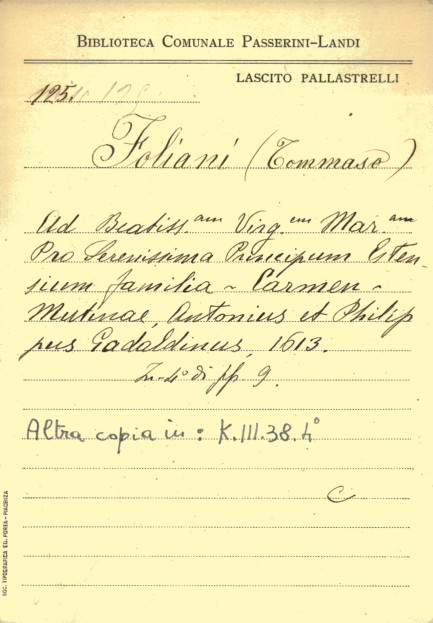 BIBLIOTECA COMUNALE PASSERINI-LANDI
LASCITO PALLASTRELLI
125.
Foliani (Tommaso)
Ad Beatiss.am Virg.em Mar.am
Pro Serenissima Principum Esten-
sium familia - Carmen -
Mutinae, Antonius et Philip
pus Gadaldinus, 1613.
In-4° di pp. 9.
Altra copia in: K.III.38.4°
C
SOC. TIPOGRAFICA ED. POREA - PIACENZA